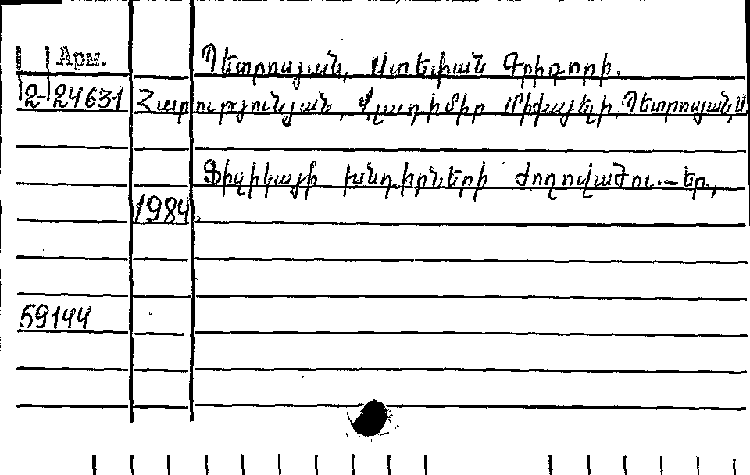 Арм. Պետրոսյան, Ստեփան Գրիգորի.
2-24631 Հարությունյան, Վլադիմիր Միխայելի, Պետրոսյան, Ս
Ֆիզիկայի խնդիրների ժողովածու.—Եր.,
1984.
59144